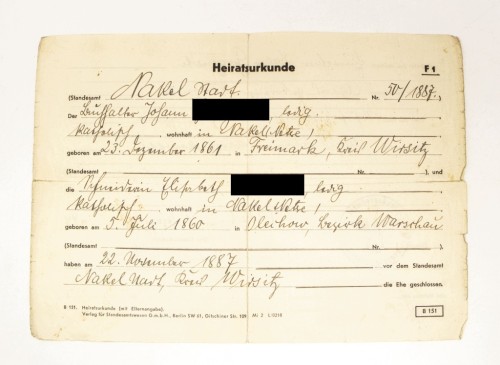 Heiratsurkunde F 1
(Standesamt Nakel Stadt. Nr. 50/1887.)
Der Buchhalter Johann , ledig.
katholisch, wohnhaft in Nakel Netze,
geboren am 23. Dezember 1861 in Freimark, Kreis Wirsitz
(Standesamt Nr. ), und
die Schneiderin Elisabeth ledig
katholisch, wohnhaft in Nakel Netze,
geboren am 5. Juli 1860 in Olechow, Bezirk Warschau
(Standesamt Nr. )
haben am 22. November 1887 vor dem Standesamt
Nakel Stadt, Kreis Wirsitz die Ehe geschlossen.
B 151. Heiratsurkunde (mit Elternangabe). B 151
Verlag für Standesamtswesen G.m.b.H., Berlin SW 61, Gitschiner Str. 109